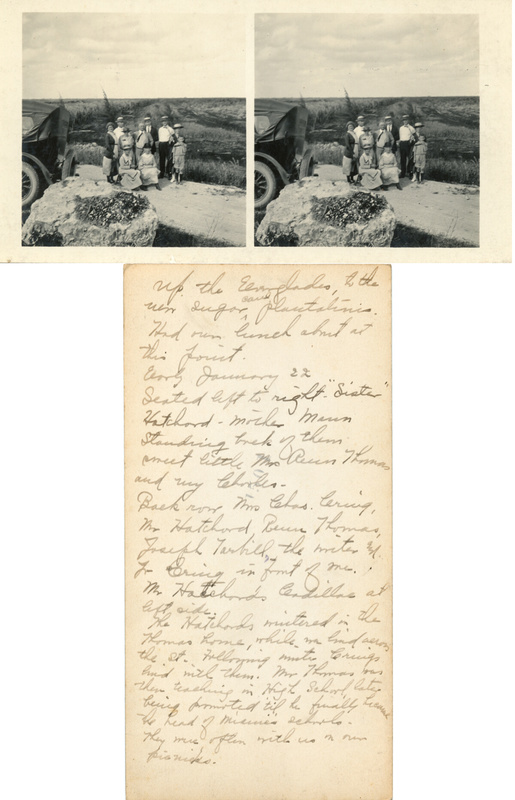 up the Everglades, to the
new sugar cane plantations.
Had our lunch about at
this point.
Early January 22
Seated left to right - "Sister"
Hatchord - Mother Mann
Standing back of them
sweet little Mrs Renn Thomas
and my Charles -
Back row Mrs Chas. Ewing,
Mr Hatchord, Renn Thomas,
Joseph the writer
Jr Ewing in front of me.
Mr Hatchord's Cadillac at
left side.
The Hatchords wintered in the
Thomas home, while we lived across
the st. Following winter Ewings
lived with them. Mr Thomas was
then teaching in High School, later
being promoted til he finally became
the head of Miami's schools -
They were often with us on our
picnics.